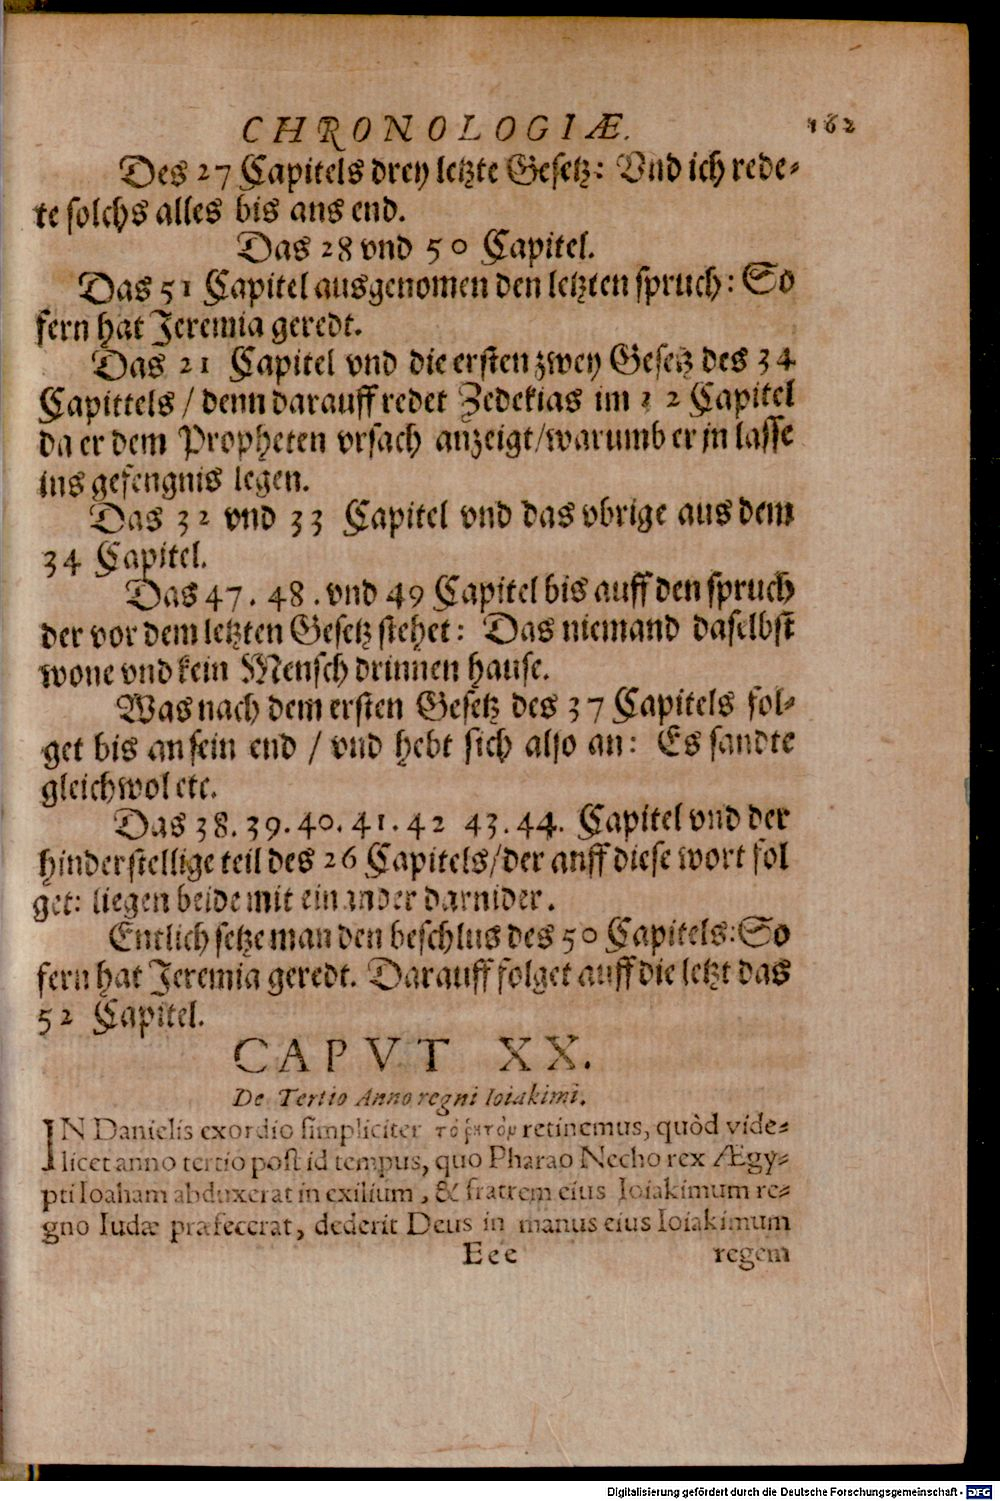 CHRONOLOGIÆ. 162
Des 27 Capitels drey letzte Gesetz: Vnd ich rede-
te solchs alles bis ans end.
Das 28 vnd 50 Capitel.
Das 51 Capitel ausgenomen den letzten spruch: So
fern hat Jeremia geredt.
Das 21 Capitel vnd die ersten zwey Gesetz des 34
Capittels / denn darauff redet Zedekias im 2 Capitel
da er dem Propheten vrsach anzeigt/warumb er jn lasse
ins gefengnis legen.
Das 32 vnd 33 Capitel vnd das vbrige aus dem
34 Capitel.
Das 47. 48. vnd 49 Capitel bis auff den spruch
der vor dem letzten Gesetz stehet: Das niemand daselbst
wone vnd kein Mensch drinnen hause.
Was nach dem ersten Gesetz des 37 Capitels fol-
get bis an sein end / vnd hebt sich also an: Es sandte
gleichwol etc.
Das 38. 39. 40. 41. 42 43. 44. Capitel vnd der
hinderstellige teil des 26 Capitels/der auff diese wort fol
get: liegen beide mit einander darnider.
Entlich setze man den beschlus des 50 Capitels: So
fern hat Jeremia geredt. Darauff folget auff die letzt das
52 Capitel.
CAPVT XX.
De Tertio Anno regni Ioiakimi.
IN Danielis exordio simpliciter τὸ ῥητὸν retinemus, quòd vide-
licet anno tertio post id tempus, quo Pharao Necho rex Ægy-
pti Ioaham abduxerat in exilium, & fratrem eius Ioiakimum re-
gno Iudæ præfecerat, dederit Deus in manus eius Ioiakimum
Eee regem
Digitalisierung gefördert durch die Deutsche Forschungsgemeinschaft - DFG